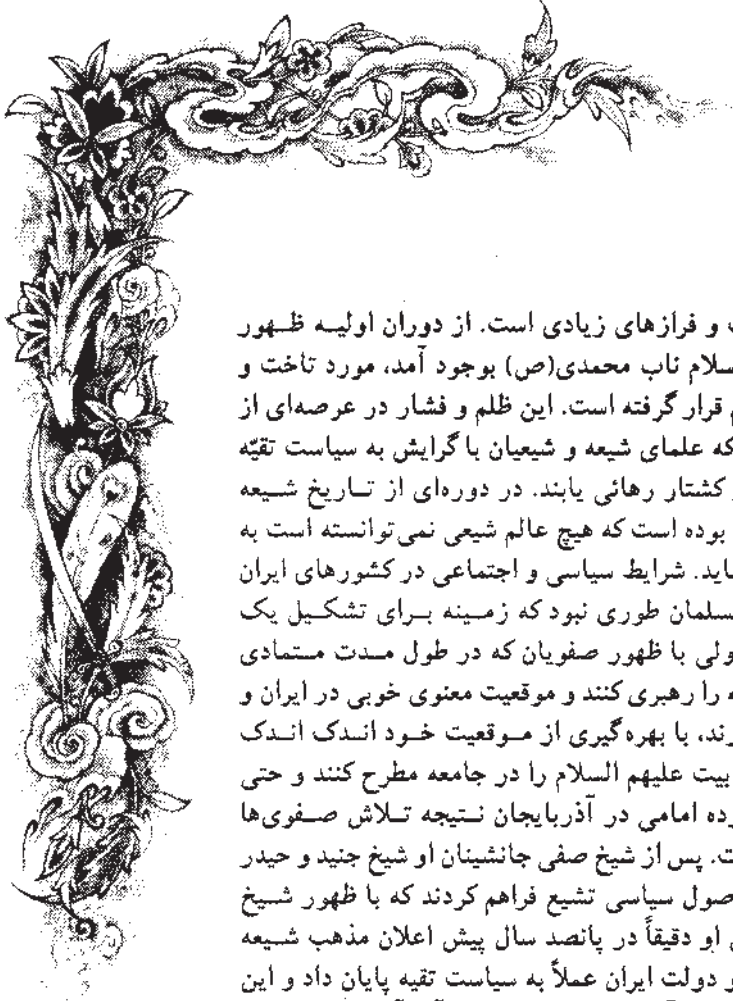 و فرازهای زیادی است. از دوران اولیه ظهور
سلام ناب محمدی(ص) بوجود آمد، مورد تاخت و
قرار گرفته است. این ظلم و فشار در عرصه‌ای از
که علمای شیعه و شیعیان با گرایش به سیاست تقیّه
کشتار رهائی یابند. در دوره‌ای از تاریخ شیعه
بوده است که هیچ عالم شیعی نمی‌توانسته است به
ماید. شرایط سیاسی و اجتماعی در کشورهای ایران
سلمان طوری نبود که زمینه برای تشکیل یک
ولی با ظهور صفویان که در طول مدت متمادی
را رهبری کنند و موقعیت معنوی خوبی در ایران و
رند، با بهره‌گیری از موقعیت خود اندک اندک
بیت علیهم السلام را در جامعه مطرح کنند و حتی
رده امامی در آذربایجان نتیجه تلاش صفوی‌ها
ت. پس از شیخ صفی جانشینان او شیخ جنید و حیدر
صول سیاسی تشیع فراهم کردند که با ظهور شیخ
او دقیقاً در پانصد سال پیش اعلان مذهب شیعه
و دولت ایران عملاً به سیاست تقیه پایان داد و این